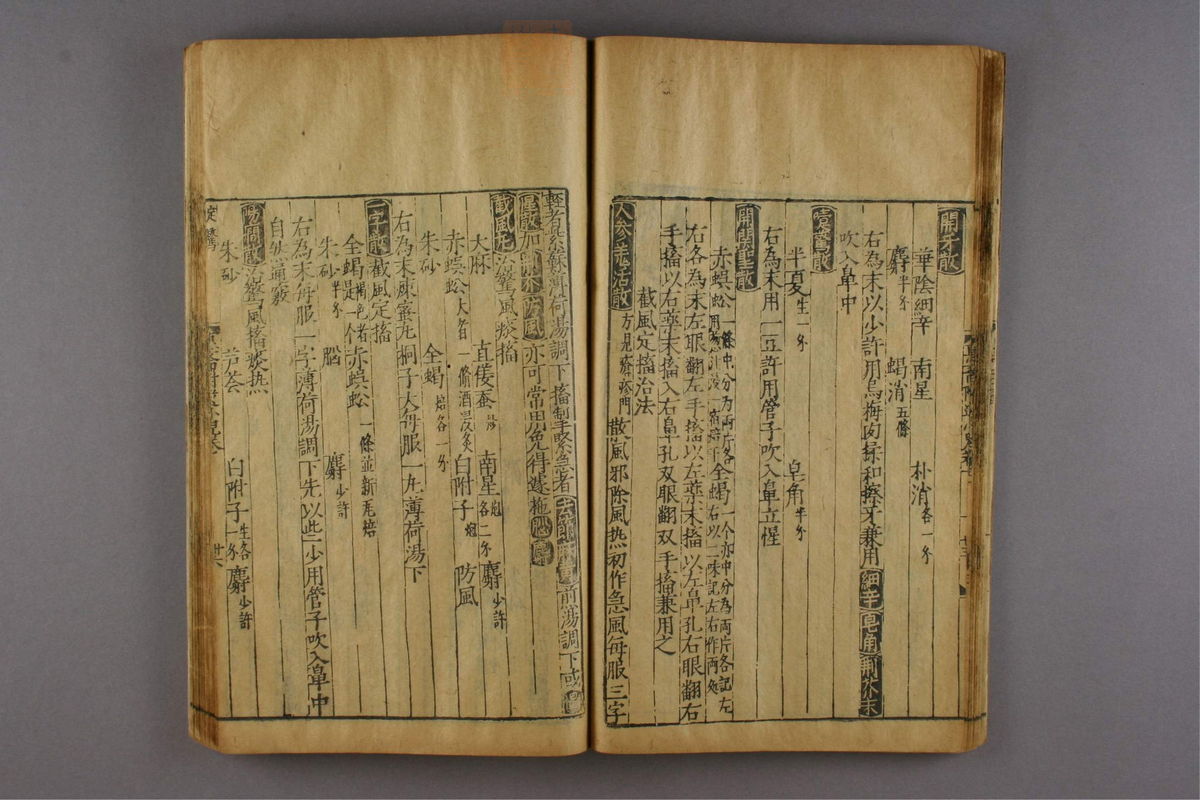 開牙散
華陰細辛 南星 朴消各一分
麝半分 蝎消五條
右為末以少許用烏梅肉揉和擦牙兼用細辛皂角荆芥末
吹入鼻中
嚏驚散
半夏生一分 皂角半分
右為末用一豆許用管子吹入鼻立惺
開関聖散
赤蜈蚣一條中分為兩片各記左 全蝎一个亦中分為兩片各記左右以二味記左右作兩處
右各為末左眼翻左手搐以左藥末搐以左鼻孔右眼翻右
手搐以右藥末搐入右鼻孔双眼翻双手搐兼用之
截風定搐治法
人参羌活散方見瘡疹門 散風邪除風热初作急風每服三字
輕者紫蘇薄荷湯調下搐掣緊急者去節麻黄前湯調下或
加荆芥防風亦可常用免得遽施
截風丸治驚風痰搐
天麻 直僵蚕 南星炮各二分 麝少許
赤蜈蚣大者一條酒浸炙 白附子炮 防風
朱砂 全蝎焙各一分
右為末煉蜜丸桐子大每服一丸薄荷湯下
一字散截風定搐
全蝎是褐色者一个 赤蜈蚣一條並新瓦焙
朱砂半分 腦 麝少許
右為末每服一字薄荷湯調下先以些少用管子吹入鼻中
自然通竅
治驚風搐痰热
朱砂 芦荟 白附子生各一分 麝少許
定驚
廿六